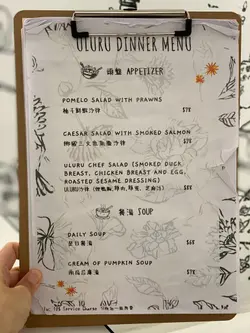 ULURU DINNER MENU
頭盤 APPETIZER
POMELO SALAD WITH PRAWNS
柚子鮮蝦沙律 $78
CAESAR SALAD WITH SMOKED SALMON
煙三文魚凱撒沙律 $78
ULURU CHEF SALAD (SMOKED DUCK
BREAST, CHICKEN BREAST AND EGG,
ROASTED SESAME DRESSING)
ULURU沙律 $78
餐湯 SOUP
DAILY SOUP
是日餐湯 $58
CREAM OF PUMPKIN SOUP
南瓜忌廉湯 $68
10% Service Charge 另收加一服務費